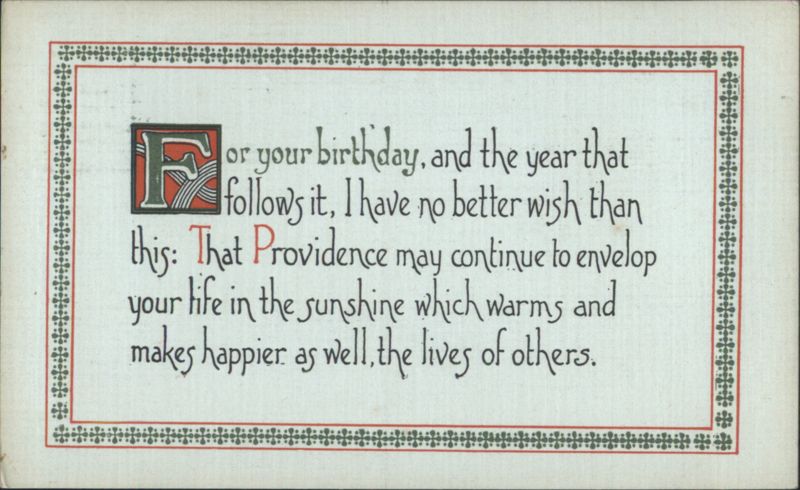 For your birthday, and the year that
follows it, I have no better wish than
this: That Providence may continue to envelop
your life in the sunshine which warms and
makes happier as well, the lives of others.